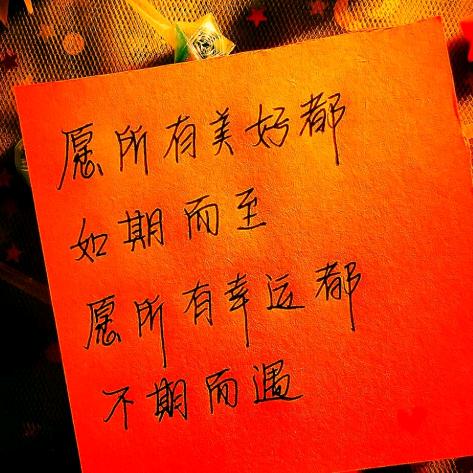 愿所有美好都
如期而至
愿所有幸运都
不期而遇